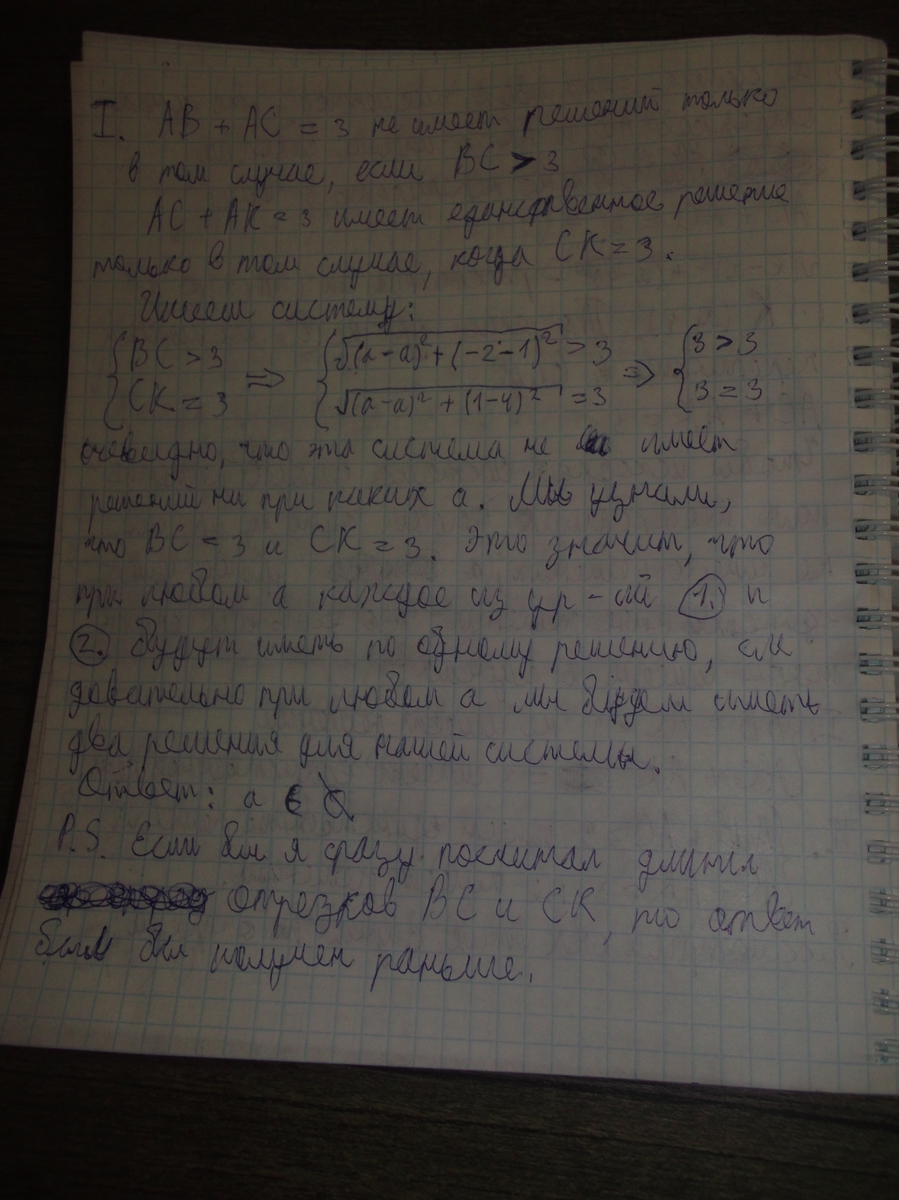 I. AB + AC = 3 не имеет решений только
в том случае, если BC > 3
AC + AK = 3 имеет единственное решение
только в том случае, когда CK = 3.
Имеем систему:
{BC > 3 {√(a-a)² + (-2-1)² > 3 {3 > 3
{CK = 3 ⇒ {√(a-a)² + (1-4)² = 3 ⇒ {3 = 3
очевидно, что эта система не имеет
решений ни при каких a. Мы узнали,
что BC = 3 и CK = 3. Это значит, что
при любом a каждое из ур-ий 1. и
2. будут иметь по одному решению, сле
довательно при любом a мы будем иметь
два решения для нашей системы.
Ответ: a ∈
P.S. Если бы я сразу посчитал длины
отрезков BC и CK, то ответ
был бы получен раньше.